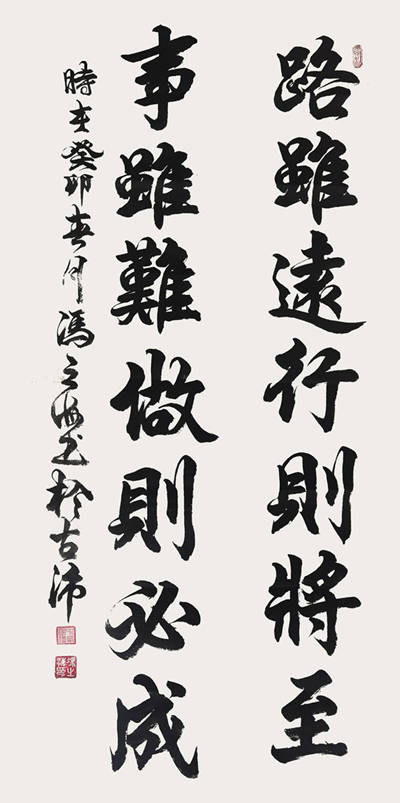 路雖遠行則將至
事雖難做則必成
時在癸卯春月馮之海書於古沛